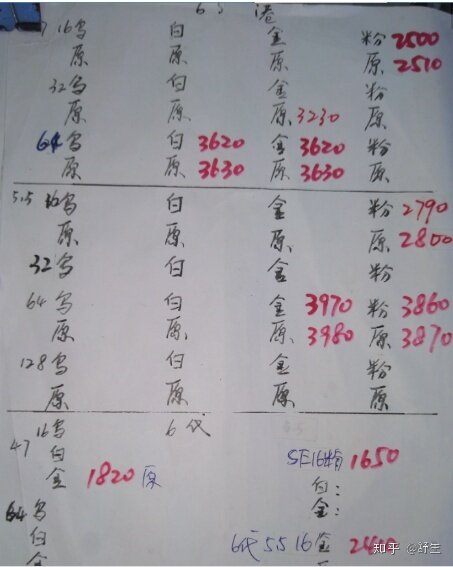 6S 港
16乌 白 金 粉 2500
原 原 原 原 2510
32乌 白 金 粉
原 原 原 3230 原
64乌 白 3620 金 3620 粉
原 原 3630 原 3630 原
5.5 16乌 白 金 粉 2790
原 原 原 原 2800
32乌 白 金 粉
64乌 白 金 3970 粉 3860
原 原 原 3980 原 3870
128乌 白 金 粉
原 原 原 原
47 16乌 6代
白 SE16 1650
金 1820 原 白:
金:
64乌
白 6代 5.5 16金
金
知乎